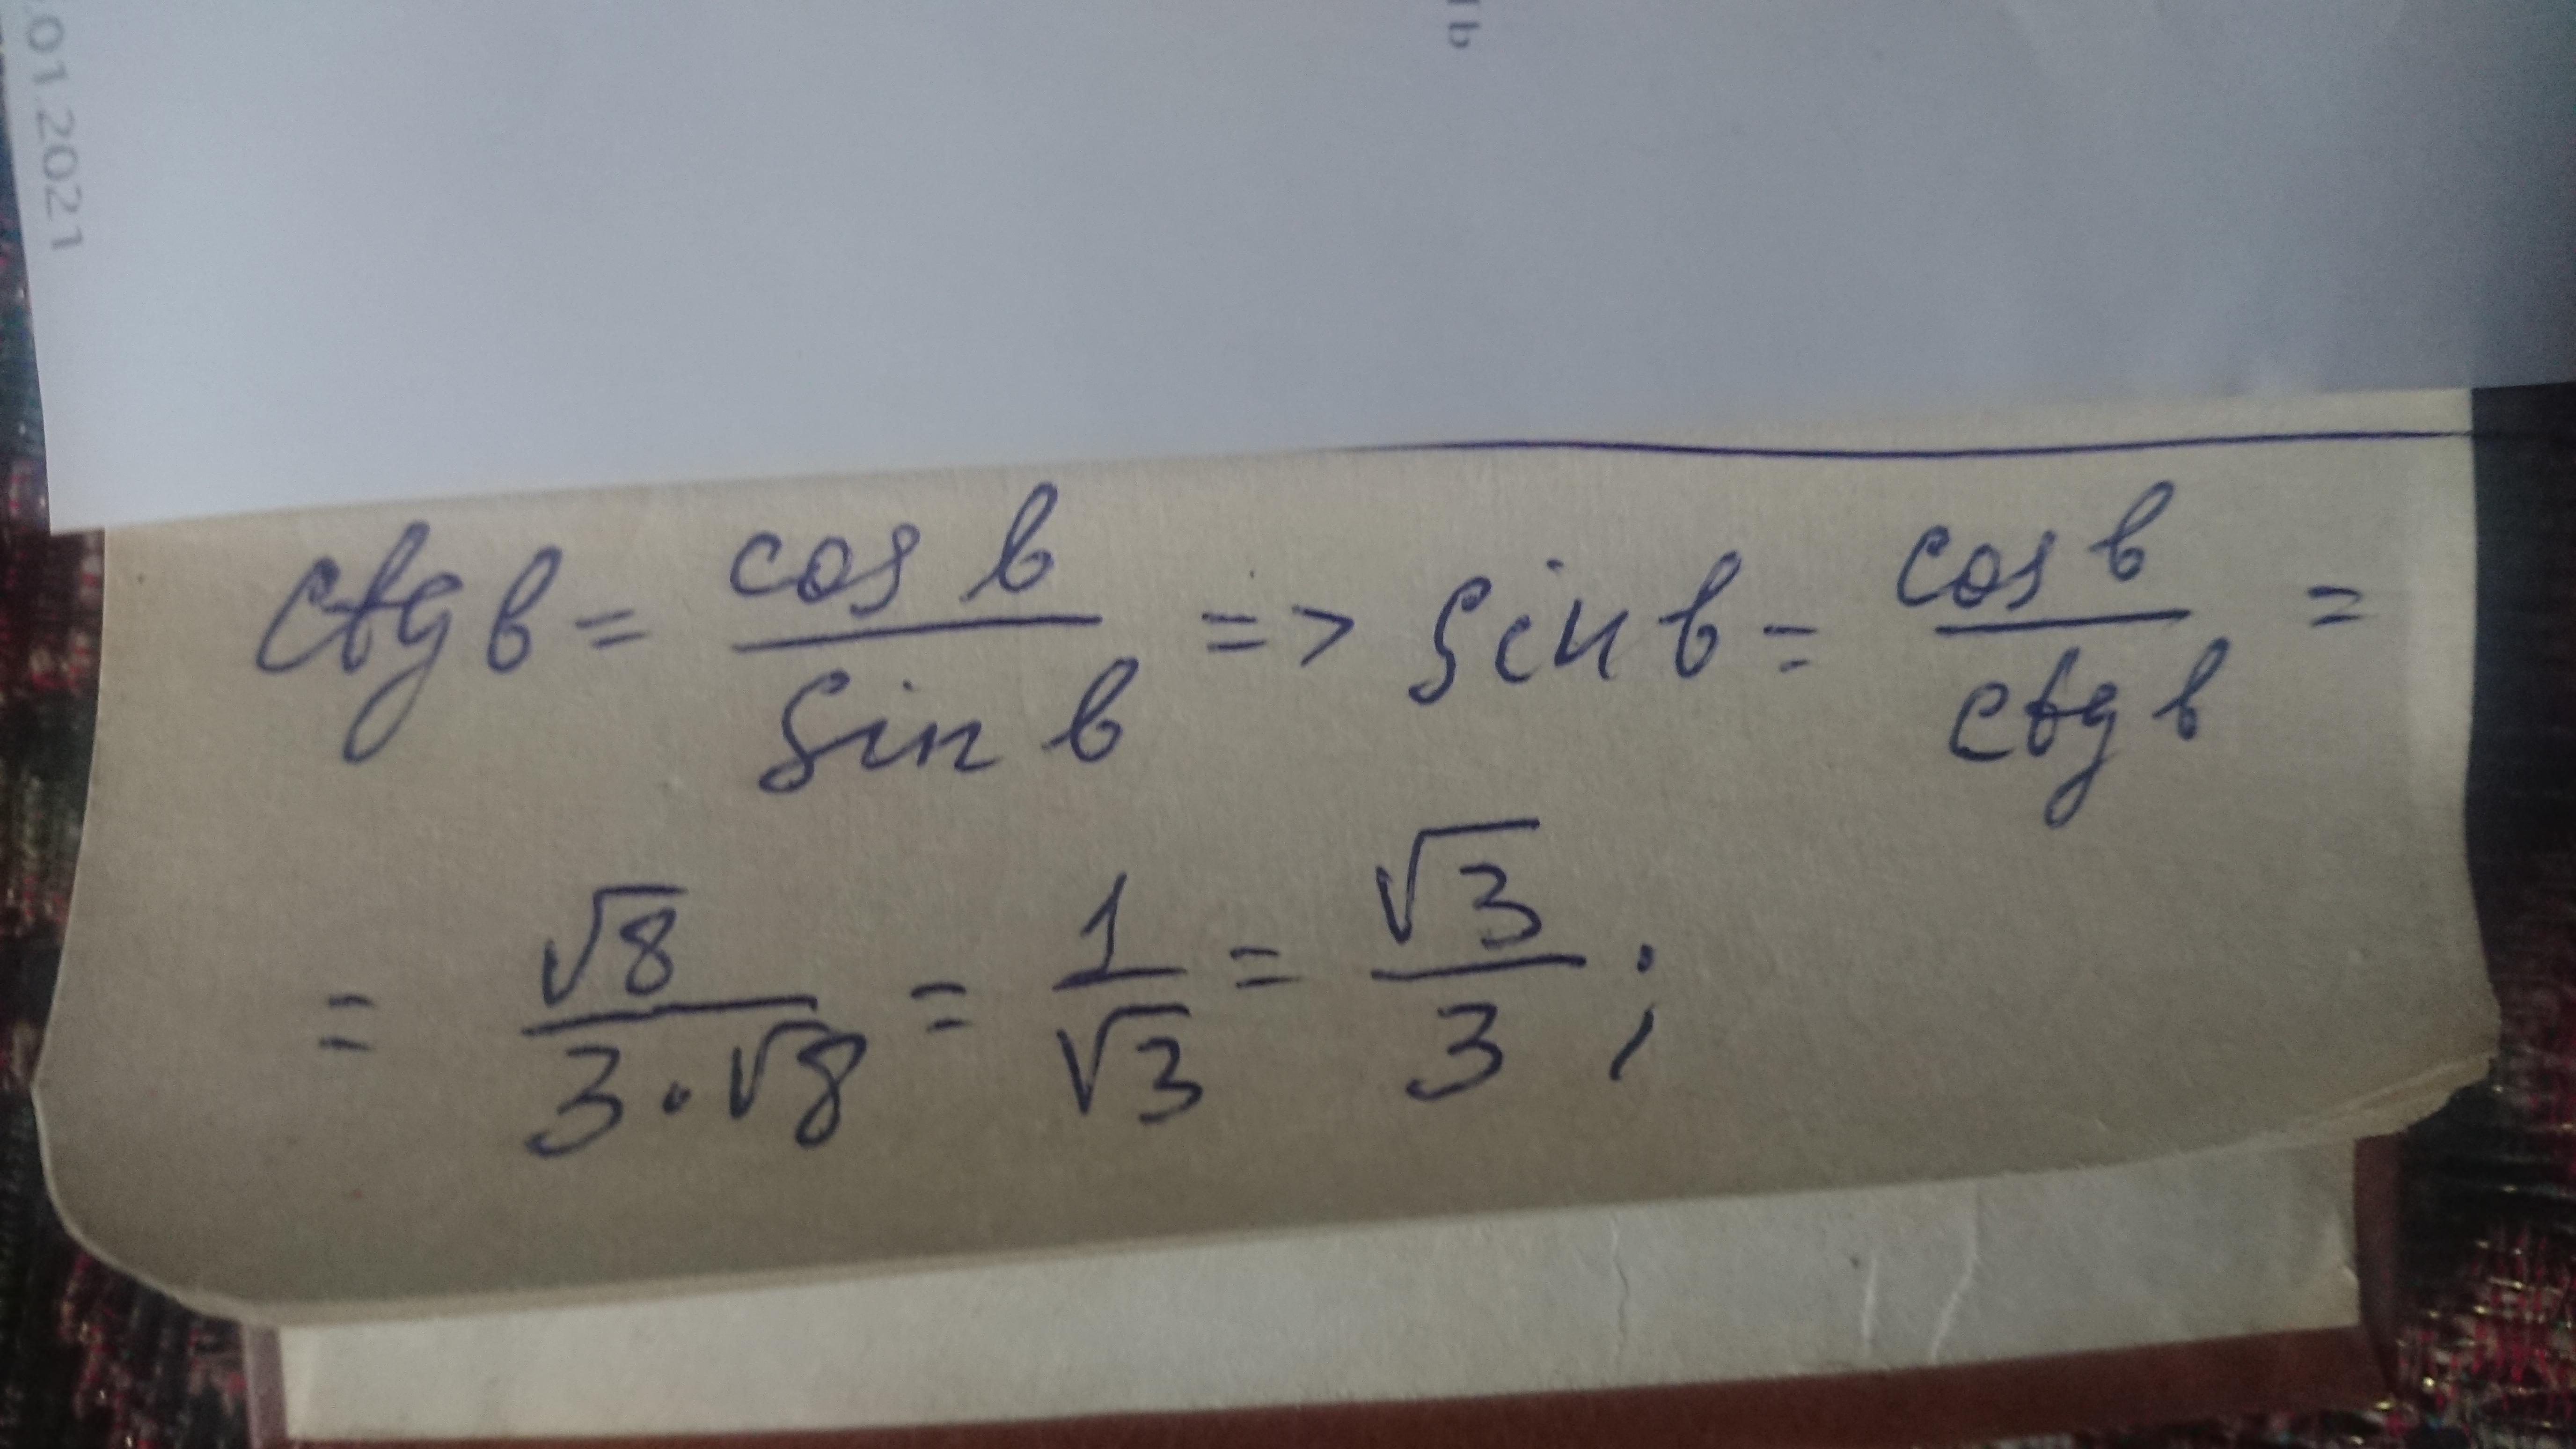 .01.2021
ть
ctg b = cos b / sin b => sin b = cos b / ctg b =
= √8 / 3·√8 = 1 / √3 = √3 / 3 ;